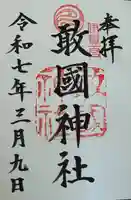 奉拝
敢國神社
令和七年三月九日